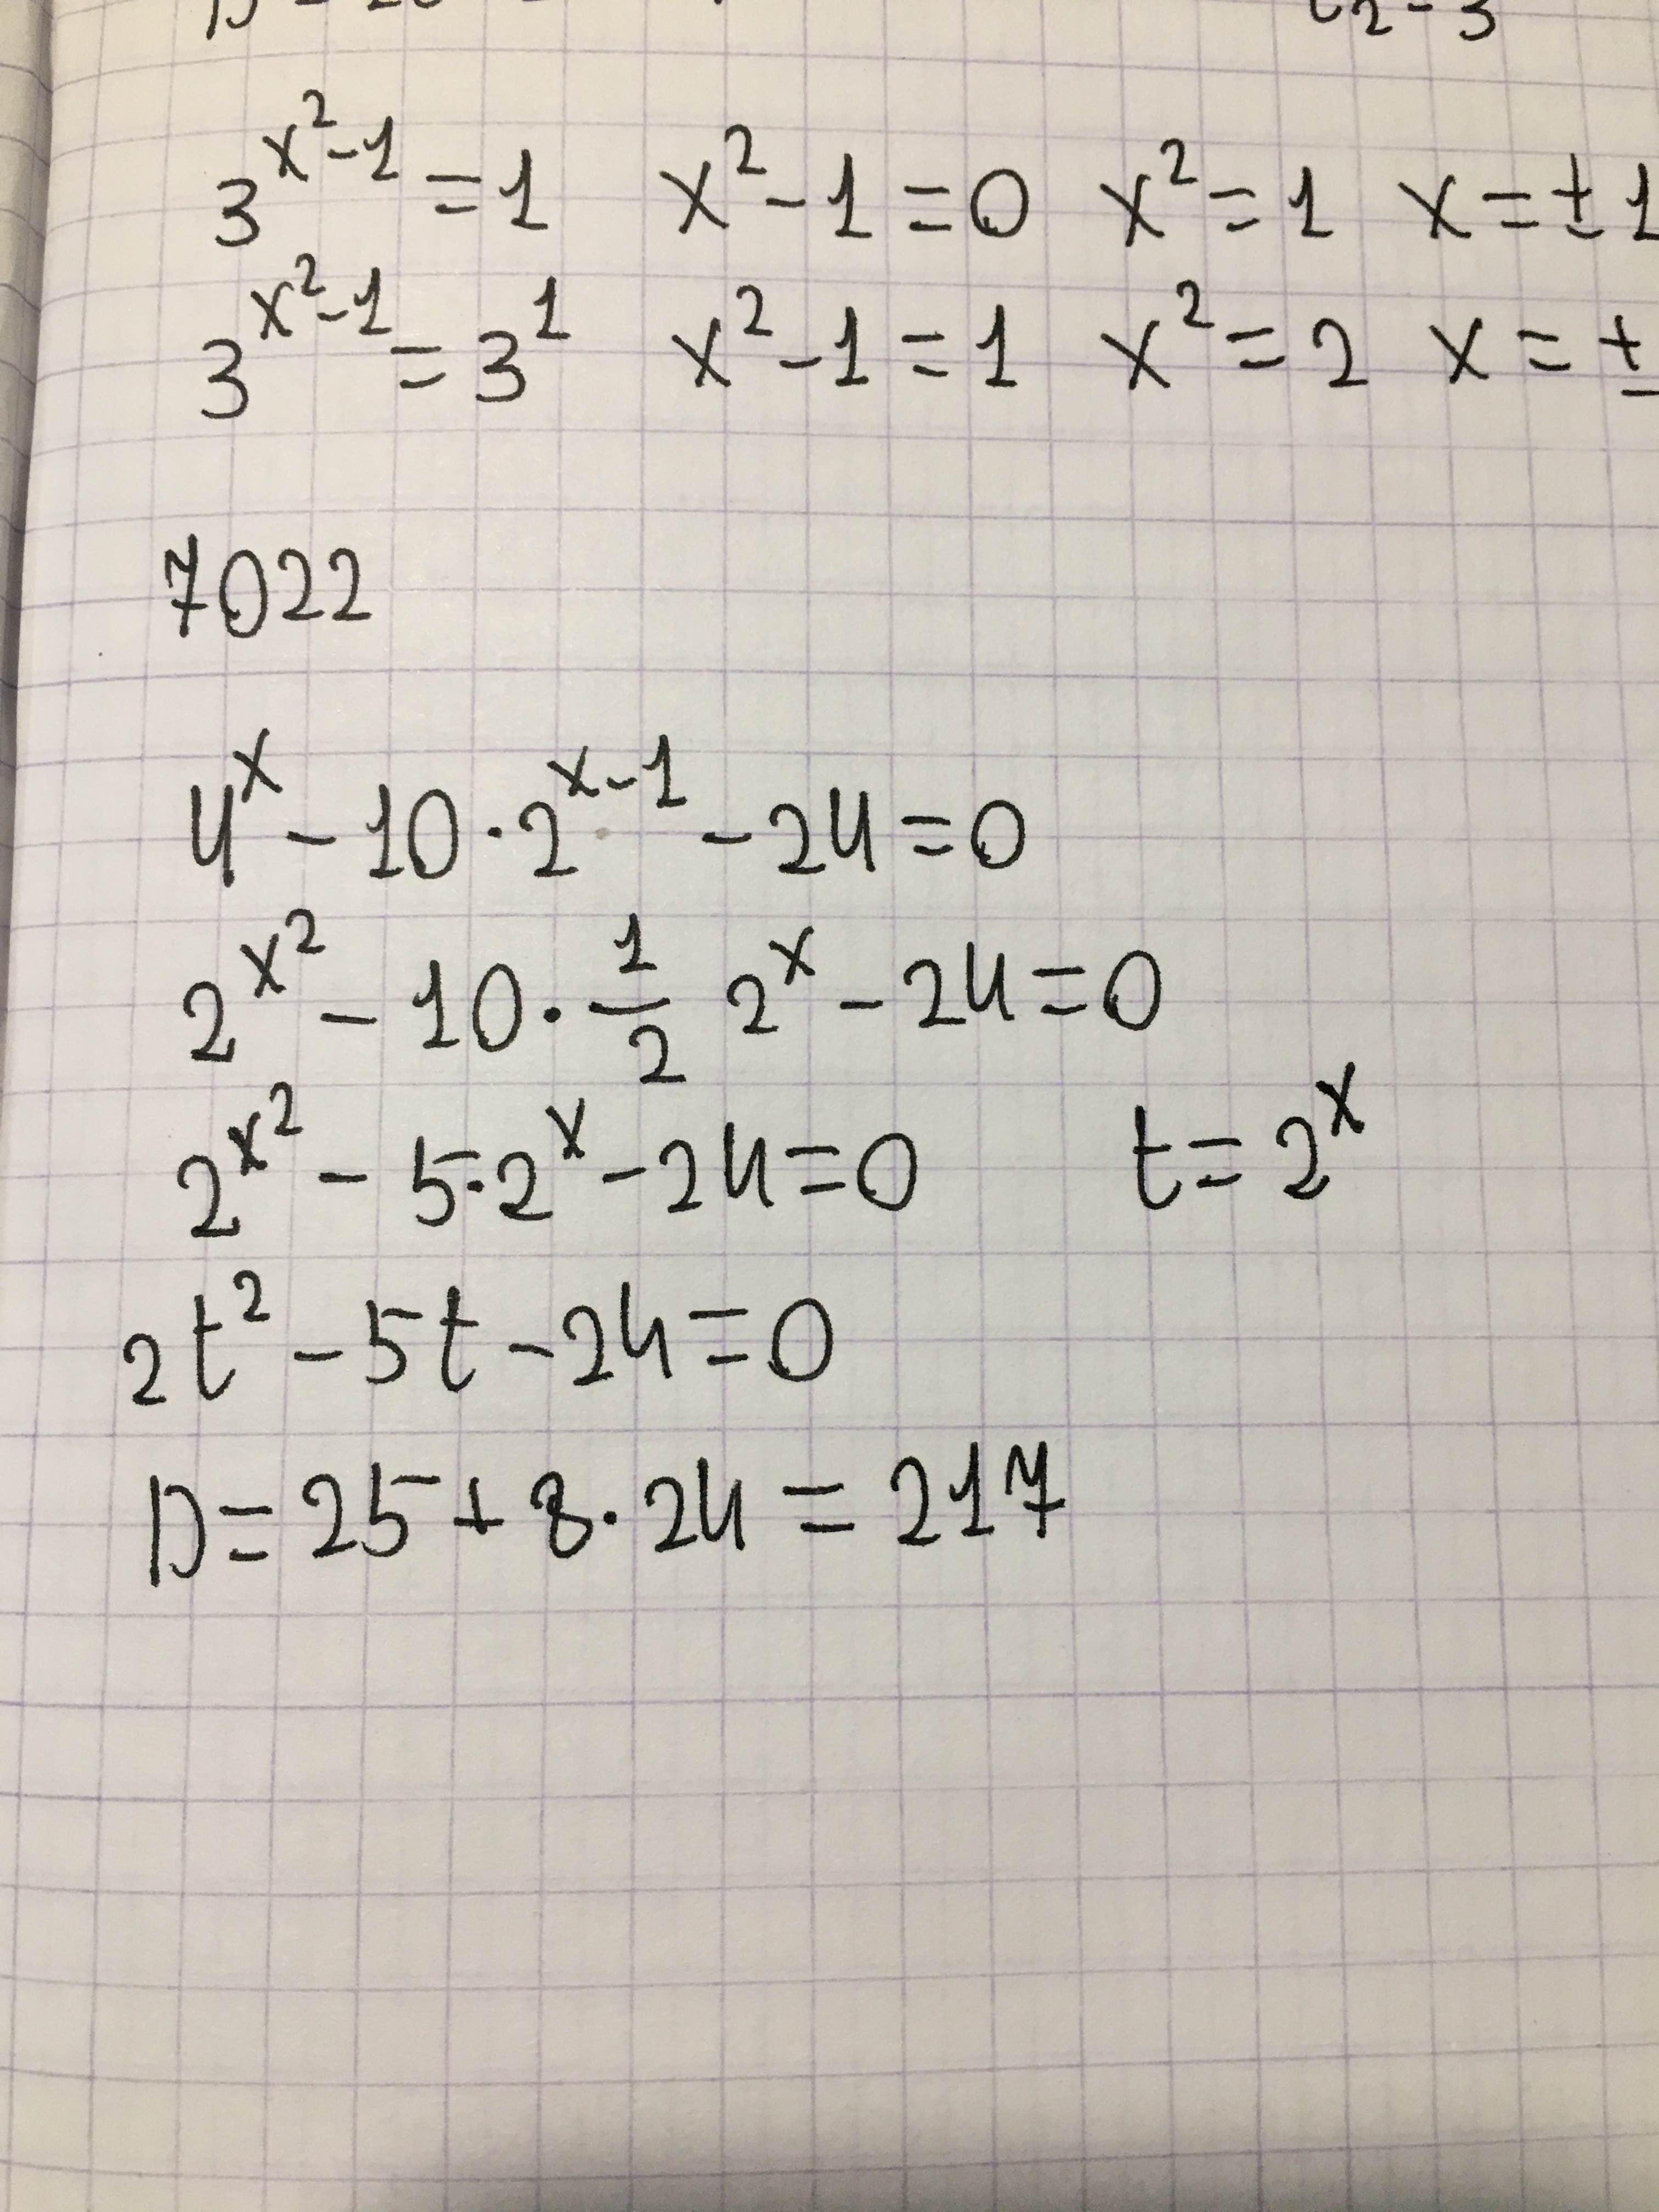 3^{x^2-1} = 1 x^2 - 1 = 0 x^2 = 1 x = ± 1
3^{x^2-1} = 3^1 x^2 - 1 = 1 x^2 = 2 x = ±
7022
4^x - 10 · 2^{x-1} - 24 = 0
2^{x^2} - 10 · \frac{1}{2} 2^x - 24 = 0
2^{x^2} - 5 · 2^x - 24 = 0 t = 2^x
2t^2 - 5t - 24 = 0
D = 25 + 8 · 24 = 217